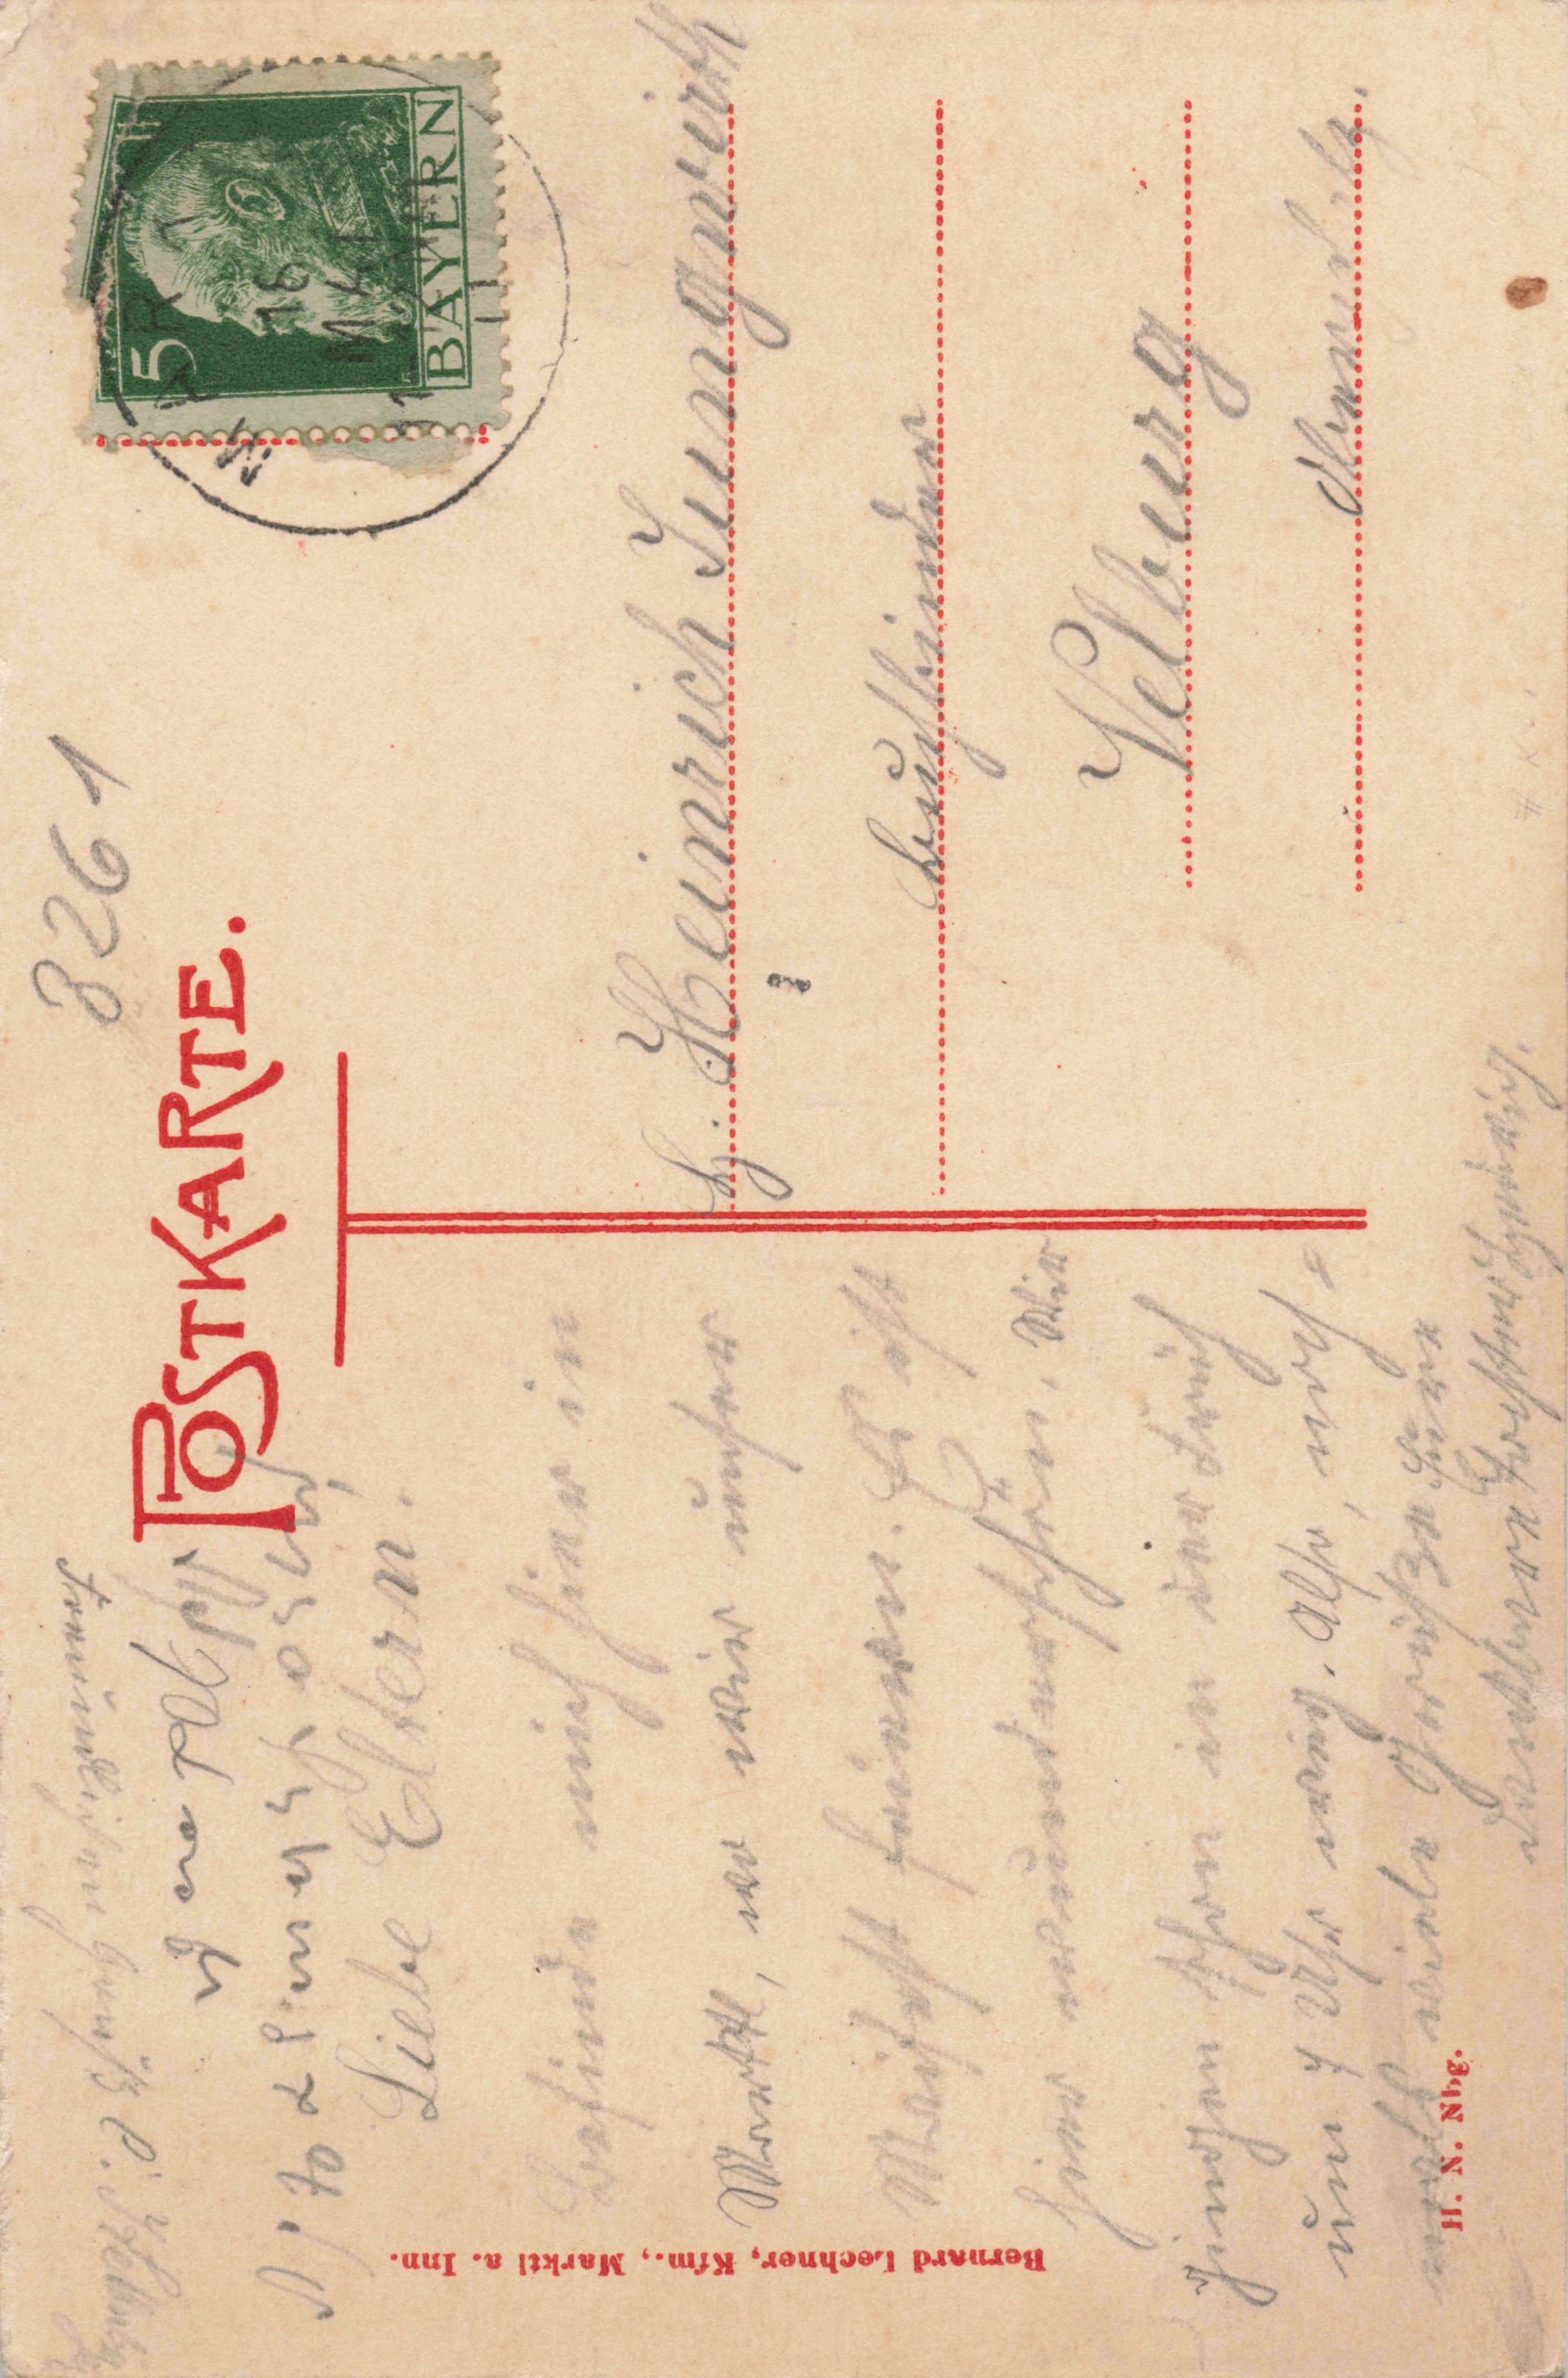 8261
POSTKARTE.
5
BAYERN
MARKT
16
MAI
11
Liebe Eltern!
Befinde mich hier in
Marktl, wo wir unser
Maifest feiern. Es ist
hier wunderschön. Wir
gingen schon in der Früh
um 7 Uhr weg. Also, noch=
mals viele Grüße Eure
dankbare Tochter Hedwig.
H. Heinrich Jungwirth
Buchbinder
Velburg
Oberpfalz.
Bernard Lechner, Kfm., Marktl a. Inn.
H. N. Nbg.